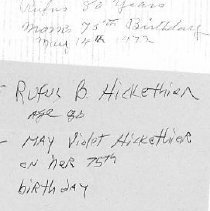 Rufus 80 Years
Mom's 75th Birthday
May 18th 1972
- Rufus B. Hickethier
age 80
- May Violet Hickethier
on her 75th
birthday